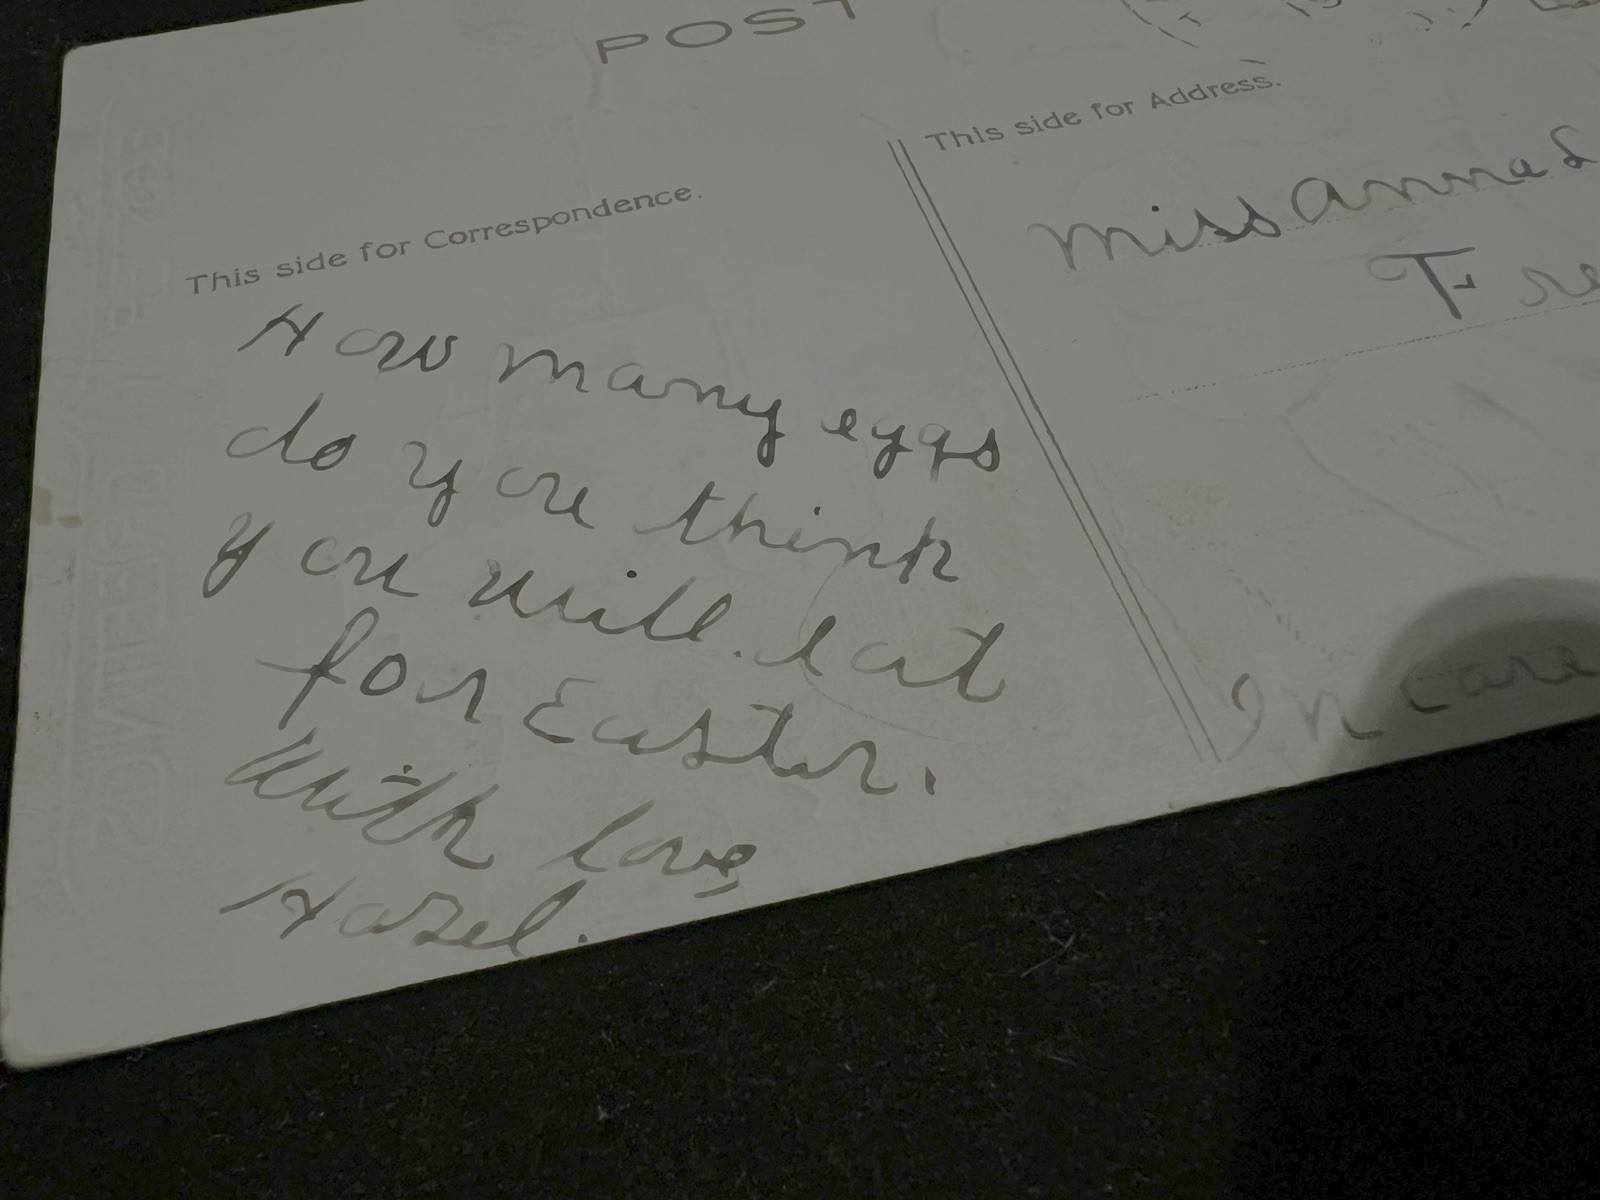 POST
This side for Correspondence.
How many eggs
do you think
you will eat
for Easter.
With love,
Hazel.
This side for Address.
Miss Anna
In care